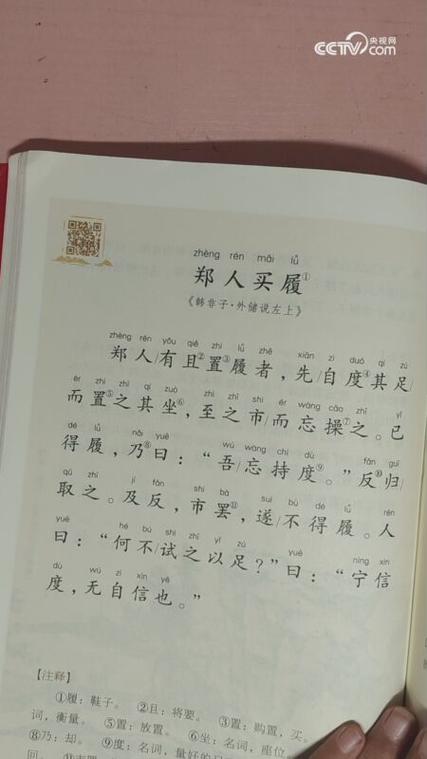 CCTV.com 央视网
zhèng rén mǎi lǚ
郑人买履①
《韩非子·外储说左上》
zhèng rén yǒu qiě zhì lǚ zhě xiān zì duó qí zú
郑人/有且②置③履者，先/自度④其足
ér zhì zhī qí zuò zhì zhī shì ér wàng cāo zhī yǐ
而置⑤之其坐⑥，至之市/而忘操⑦之。已
dé lǚ nǎi yuē wú wàng chí dù fǎn guī
得履，乃⑧曰：“吾/忘持度⑨。”反⑩归
qǔ zhī jí fǎn shì bà suì bù dé lǚ rén
取之。及反，市罢⑪，遂/不得履。人
yuē hé bù shì zhī yǐ zú yuē nìng xìn
曰：“何不/试之以足？”曰：“宁信
dù wú zì xìn yě
度，无自信也。”
【注释】
①履：鞋子。 ②且：将要。 ③置：购置，买。
词，衡量。 ⑤置：放置。 ⑥坐：名词，座位
⑧乃：却。 ⑨度：名词，量好的